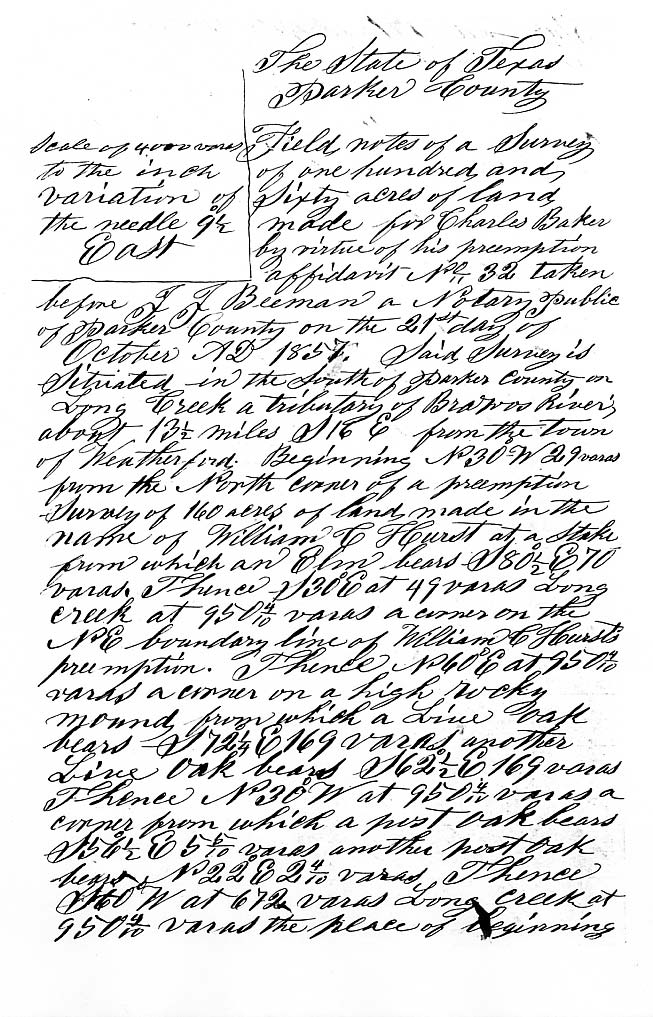 The State of Texas
Parker County
Scale of 4000 varas
to the inch
variation of
the needle 9½°
East
Field notes of a Survey
of one hundred and
Sixty acres of land
made for Charles Baker
by virtue of his preemption
affidavit No. 32 taken
before J J Beeman a Notary Public
of Parker County on the 21st day of
October AD 1857. Said Survey is
Situated in the South of Parker County on
Long Creek a tributary of Brawos River,
about 13½ miles S 16 E from the town
of Weatherford. Beginning N 30° W 29 varas
from the North corner of a preemption
Survey of 160 acres of land made in the
name of William C Hurst at a Stake
from which an Elm bears S 80½° E 70
varas. Thence S 30° E at 49 varas Long
creek at 950 4/10 varas a corner on the
NE boundary line of William C Hurst's
preemption. Thence N 60° E at 950 4/10
varas a corner on a high rocky
mound from which a Live oak
bears S 72¼° E 169 varas another
Live Oak bears S 62½° E 169 varas
Thence N 30° W at 950 4/10 varas a
corner from which a post oak bears
S 56½° E 5 6/10 varas another post oak
bears N 22° E 2 4/10 varas, Thence
S 60° W at 672 varas Long Creek at
950 4/10 varas the place of beginning